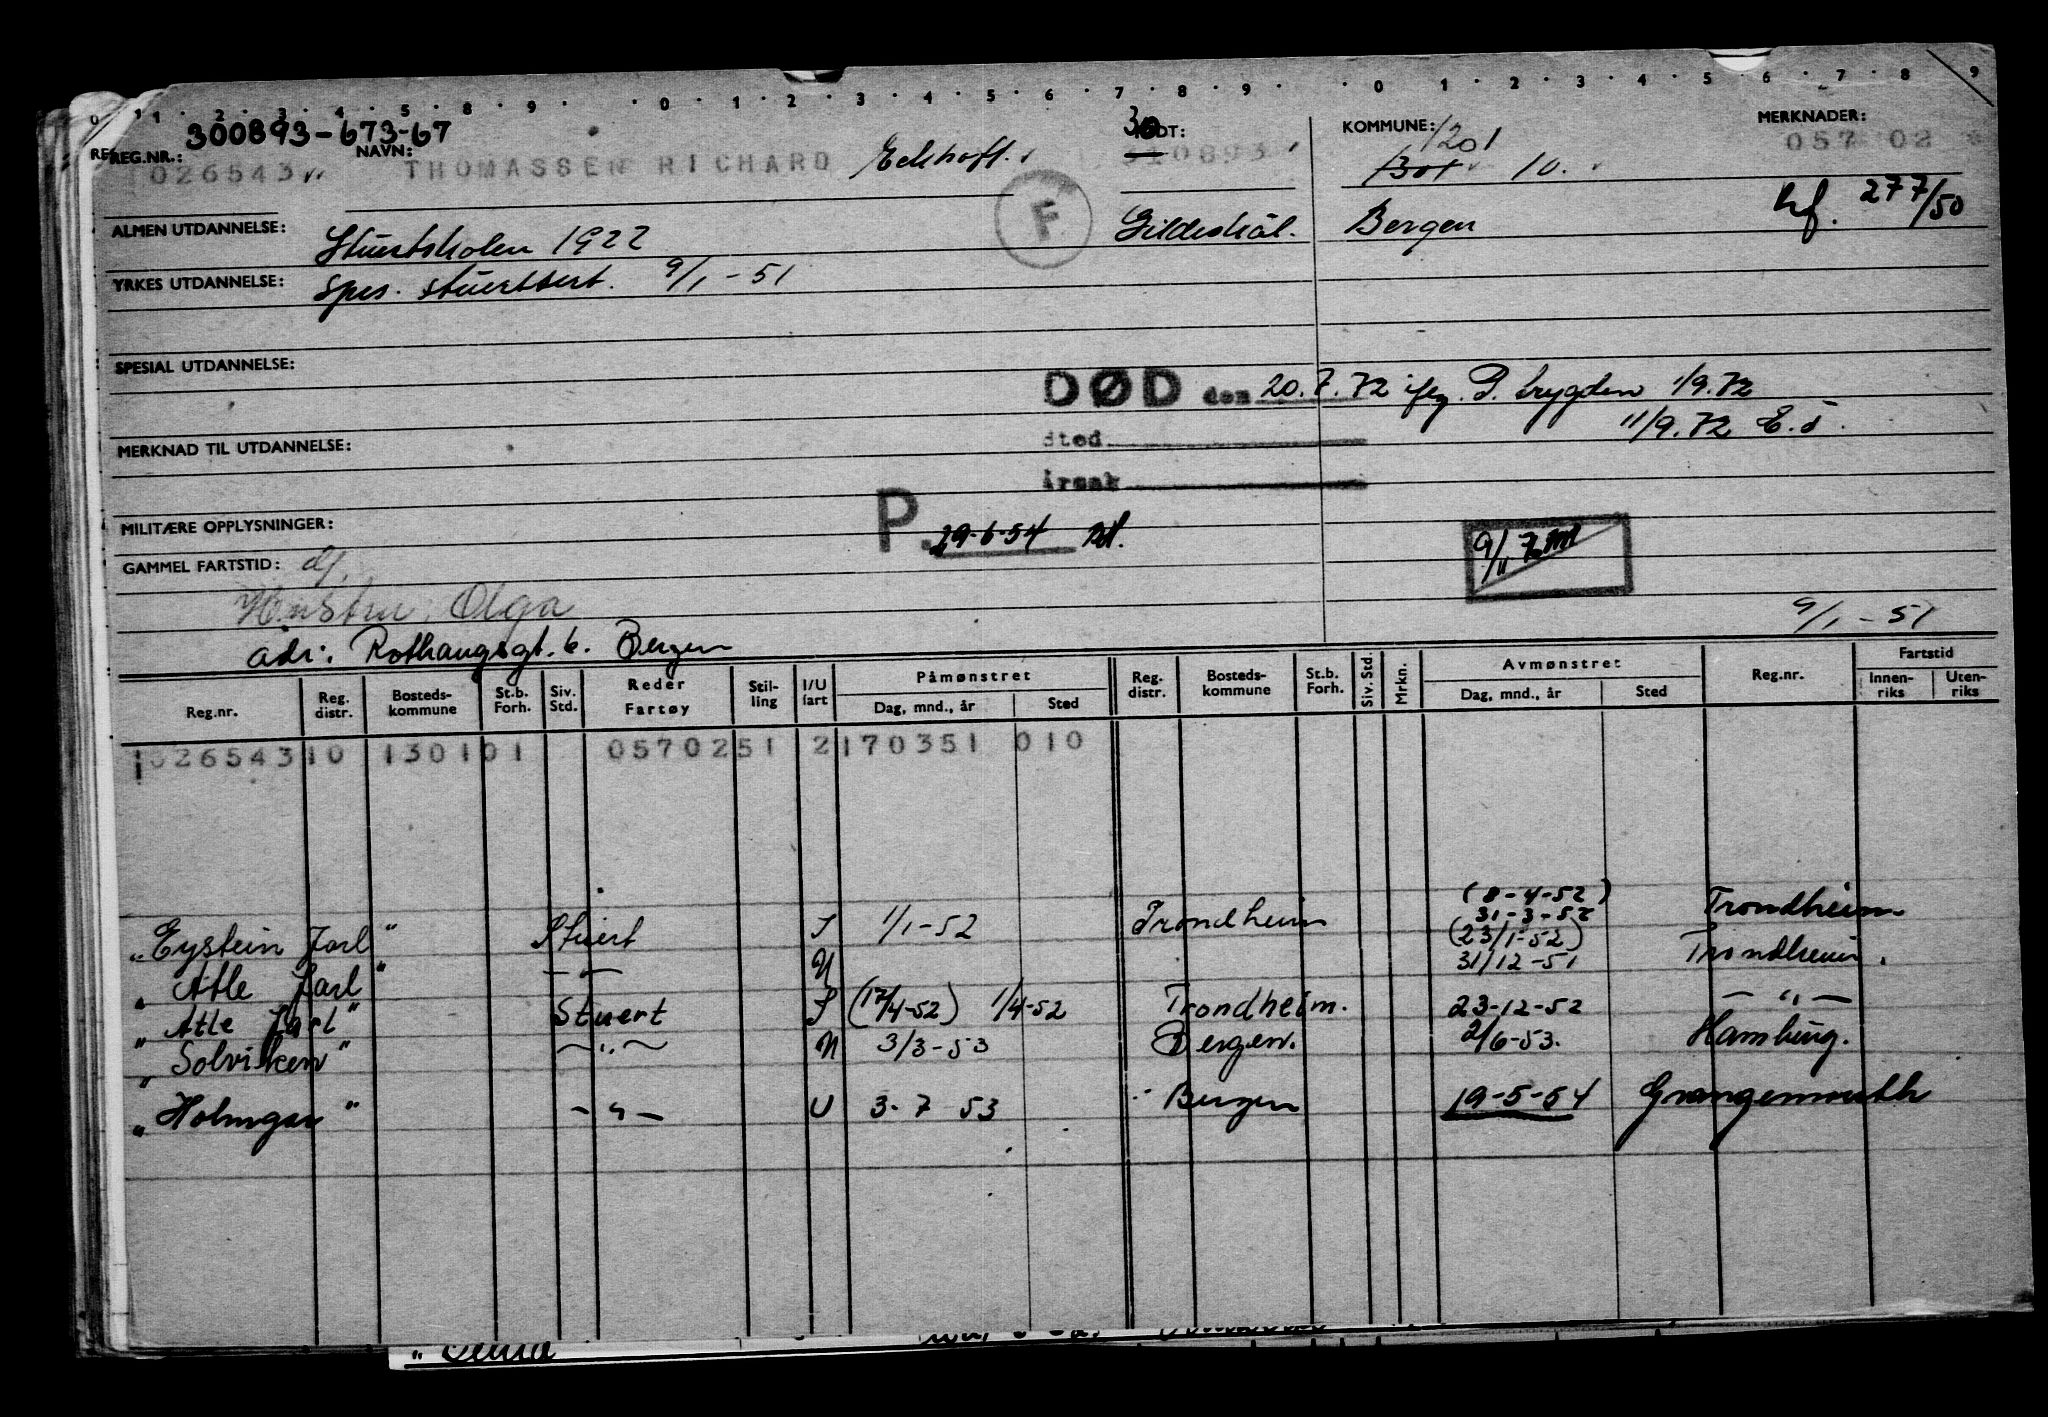 0 1 . 2 . 3 . 4 . 5 . 8 . 9 . . 0 . 1 . 2 . 3 . 4 . 5 . 6 . 7 . 8 . 9 . . 0 . 1 . 2 . 3 . 4 . 5 . 6 . 7 . 8 . 9
300893-673-67
REG.NR.: 026543 NAVN: THOMASSEN RICHARD Eckhoff. FØDT: 30 310893 KOMMUNE: 1201 1301 10. MERKNADER: 057 02
ALMEN UTDANNELSE: Stuertskolen 1922 F Gildeskål. Bergen hf. 277/50
YRKES UTDANNELSE: Spes. stuertsert. 9/1-51
SPESIAL UTDANNELSE:
DØD den 20.7.72 iflg. P. trygden 1/9.72
11/9.72 E.S.
MERKNAD TIL UTDANNELSE: Sted
Årsak
MILITÆRE OPPLYSNINGER: P. 29-6-54
GAMMEL FARTSTID: 9/11 72
Hustru: Olga
9/1-51
adr: Rothaugsgt. 6. Bergen
Reg.nr. Reg. distr. Bosteds-kommune St.b. Forh. Siv. Std. Reder Fartøy Stil-ling I/U fart Påmønstret Dag, mnd., år Sted Reg. distr. Bosteds-kommune St.b. Forh. Siv. Std. Mrkn. Avmønstret Dag, mnd., år Sted Reg.nr. Fartstid Innen-riks Uten-riks
026543 10 1301 01 0570251 2 170351 010
(8-4-52)
"Eystein Jarl" Stuert I 1/1-52 Trondheim 31-3-52 Trondheim
(23/1-52)
"Atle Jarl" - - U 31/12-51 Trondheim.
"Atle Jarl" Stuert I (17/4-52) 1/4-52 Trondheim. 23-12-52 - " -
"Solviken" - " - U 3/3-53 Bergen. 2/6-53. Hamburg.
"Holmgar" - " - U 3-7 53 Bergen 19-5-54 Grangemouth